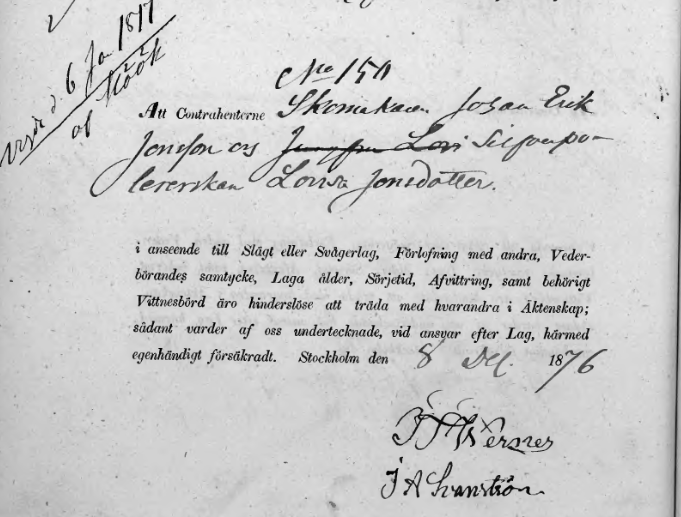 d. 6 Jan 1877
af Höök
No 150
Att Contrahenterne Skomakaren Johan Erik
Jonsson och Jungfru Lovi Silfverpo-
lererskan Lovisa Jonsdotter.
i anseende till Slägt eller Svågerlag, Förlofning med andra, Veder-
börandes samtycke, Laga ålder, Sörjetid, Afvittring, samt behörigt
Vittnesbörd äro hinderslöse att träda med hvarandra i Äktenskap;
sådant varder af oss undertecknade, vid ansvar efter Lag, härmed
egenhändigt försäkradt. Stockholm den 8 Dec. 1876
Werner
J A Svanström